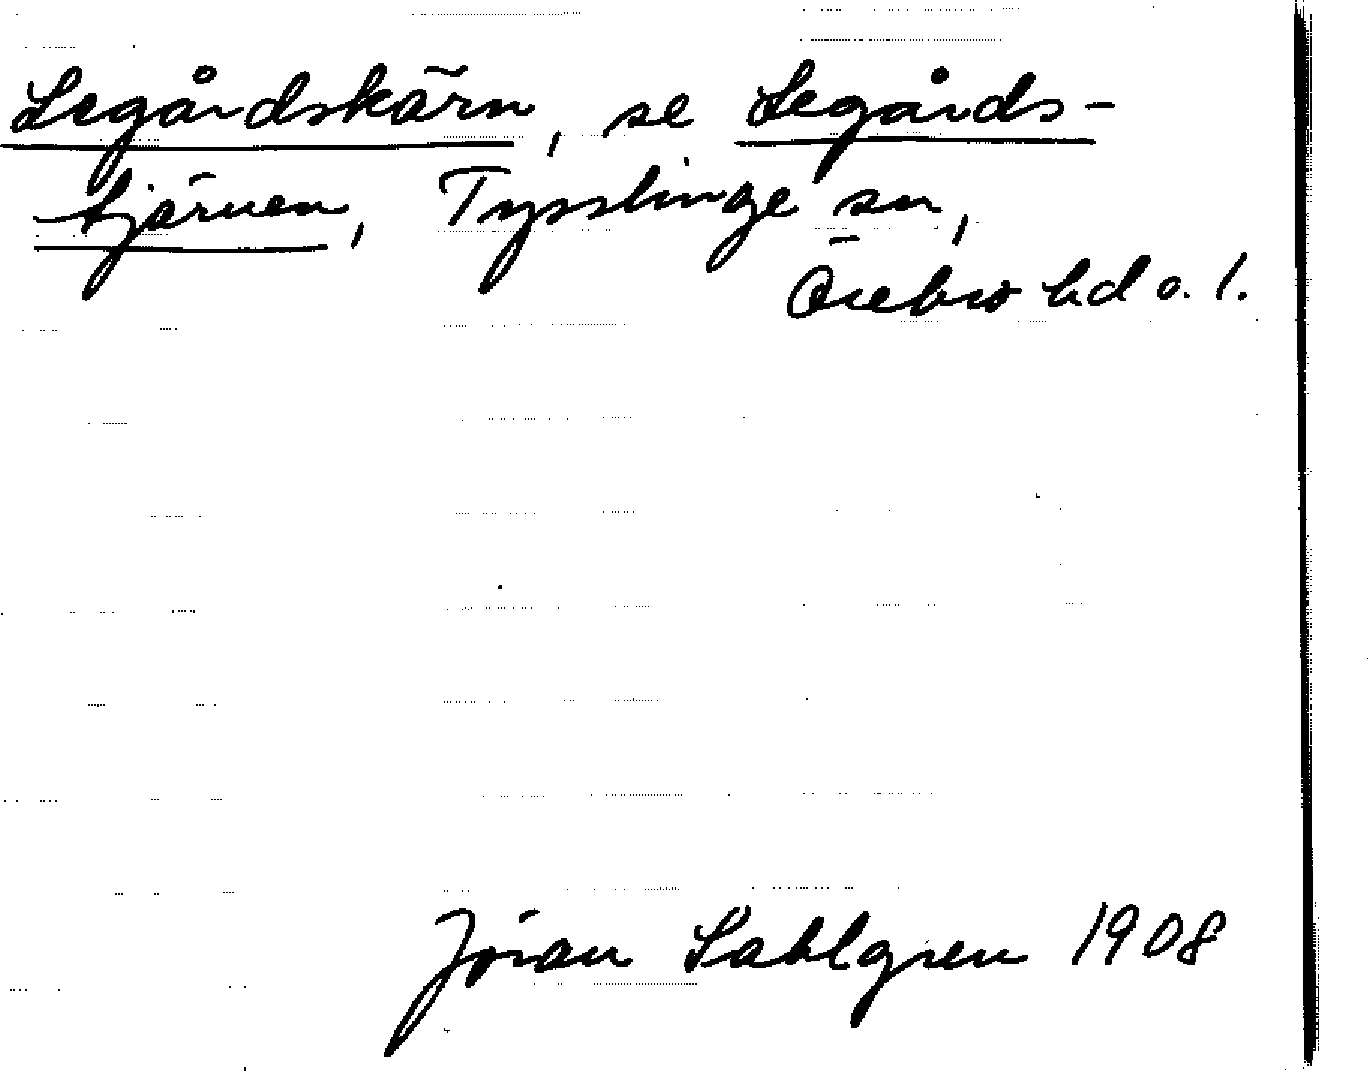 Legårdskärn, se Legårds-
tjärnen, Tysslinge sn,
Örebro hd o. l.
Jöran Sahlgren 1908